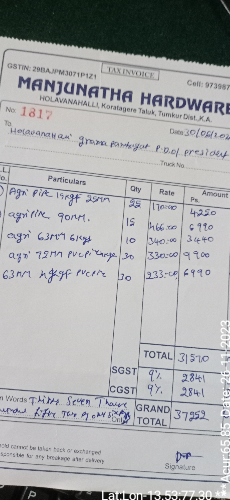 TAX INVOICE
GSTIN: 29BAJPM3071P1Z1
Cell: 973987
MANJUNATHA HARDWARE
HOLAVANAHALLI, Koratagere Taluk, Tumkur Dist.,K.A.
No. 1817
Date 30/05/202
To,
Holavanahalli grama Panchayat P.D.O/ president
Truck No.
No. Particulars Qty Rate Amount
Ps.
Agri Pipe 25 170=00 4250
agri Pipe 90MM. 15 466=00 6990
agri 63MM 6kgs 10 340=00 3440
agri 75MM PVC Pipe 30 330=00 9900
63MM PVC Pipe 30 233=00 6990
TOTAL 31570
SGST 9% 2841
CGST 9% 2841
GRAND TOTAL 37252
in Words Thirty Seven Thous
Two
Only
sold cannot be taken back or exchanged
responsible for any breakage after delivery
Signature
LatLon-13.53,77.30